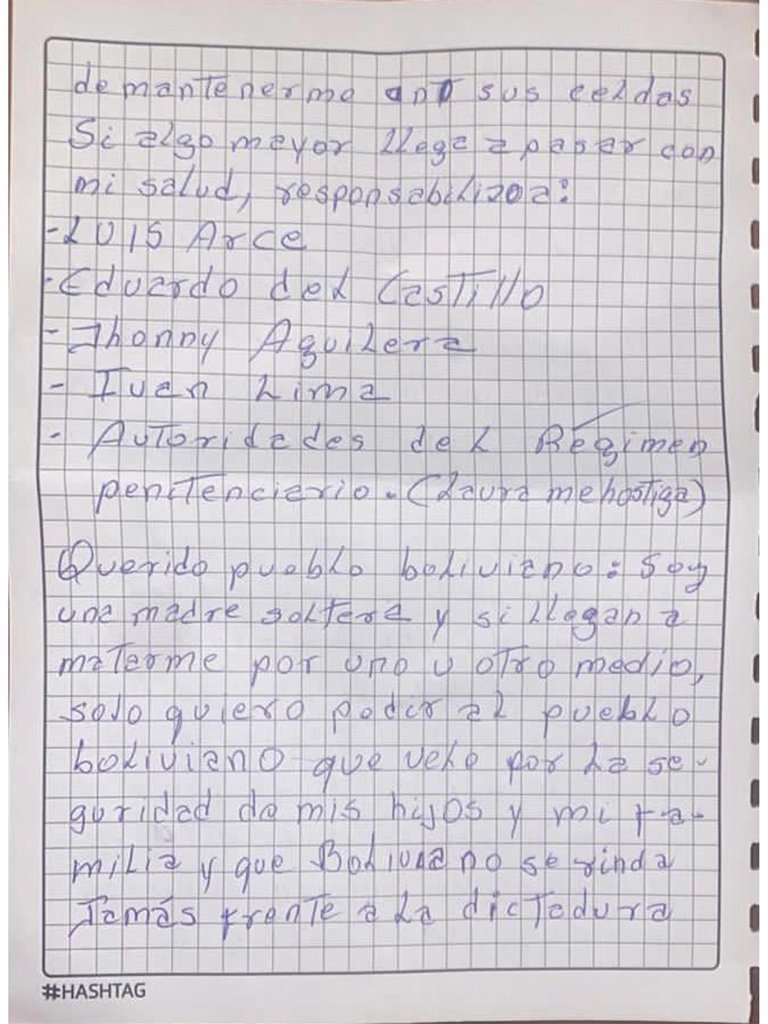 de mantenerme  sus celdas
Si algo mayor llega a pasar con
mi salud, responsabilizo a:
- Luis Arce
- Eduardo del Castillo
- Jhonny Aguilera
- Ivan Lima
- Autoridades del Régimen
penitenciario. (Laura me hostiga)
Querido pueblo boliviano: Soy
una madre soltera y si llegan a
matarme por uno u otro medio,
solo quiero pedir al pueblo
boliviano que vele por la se-
guridad de mis hijos y mi fa-
milia y que Bolivia no se rinda
Jamás frente a la dictadura
#HASHTAG